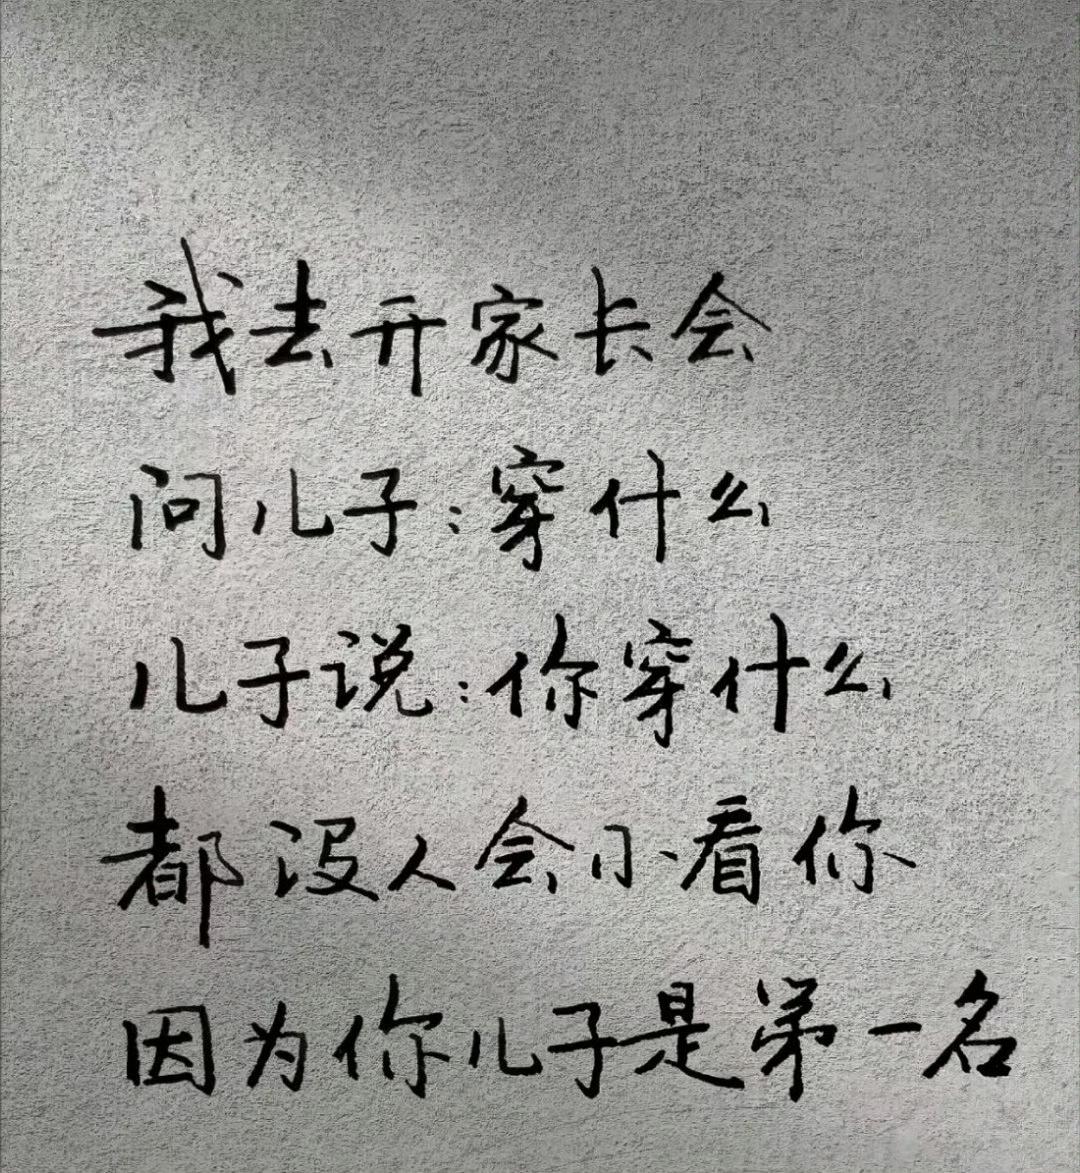 我去开家长会
问儿子:穿什么
儿子说:你穿什么
都没人会小看你
因为你儿子是第一名